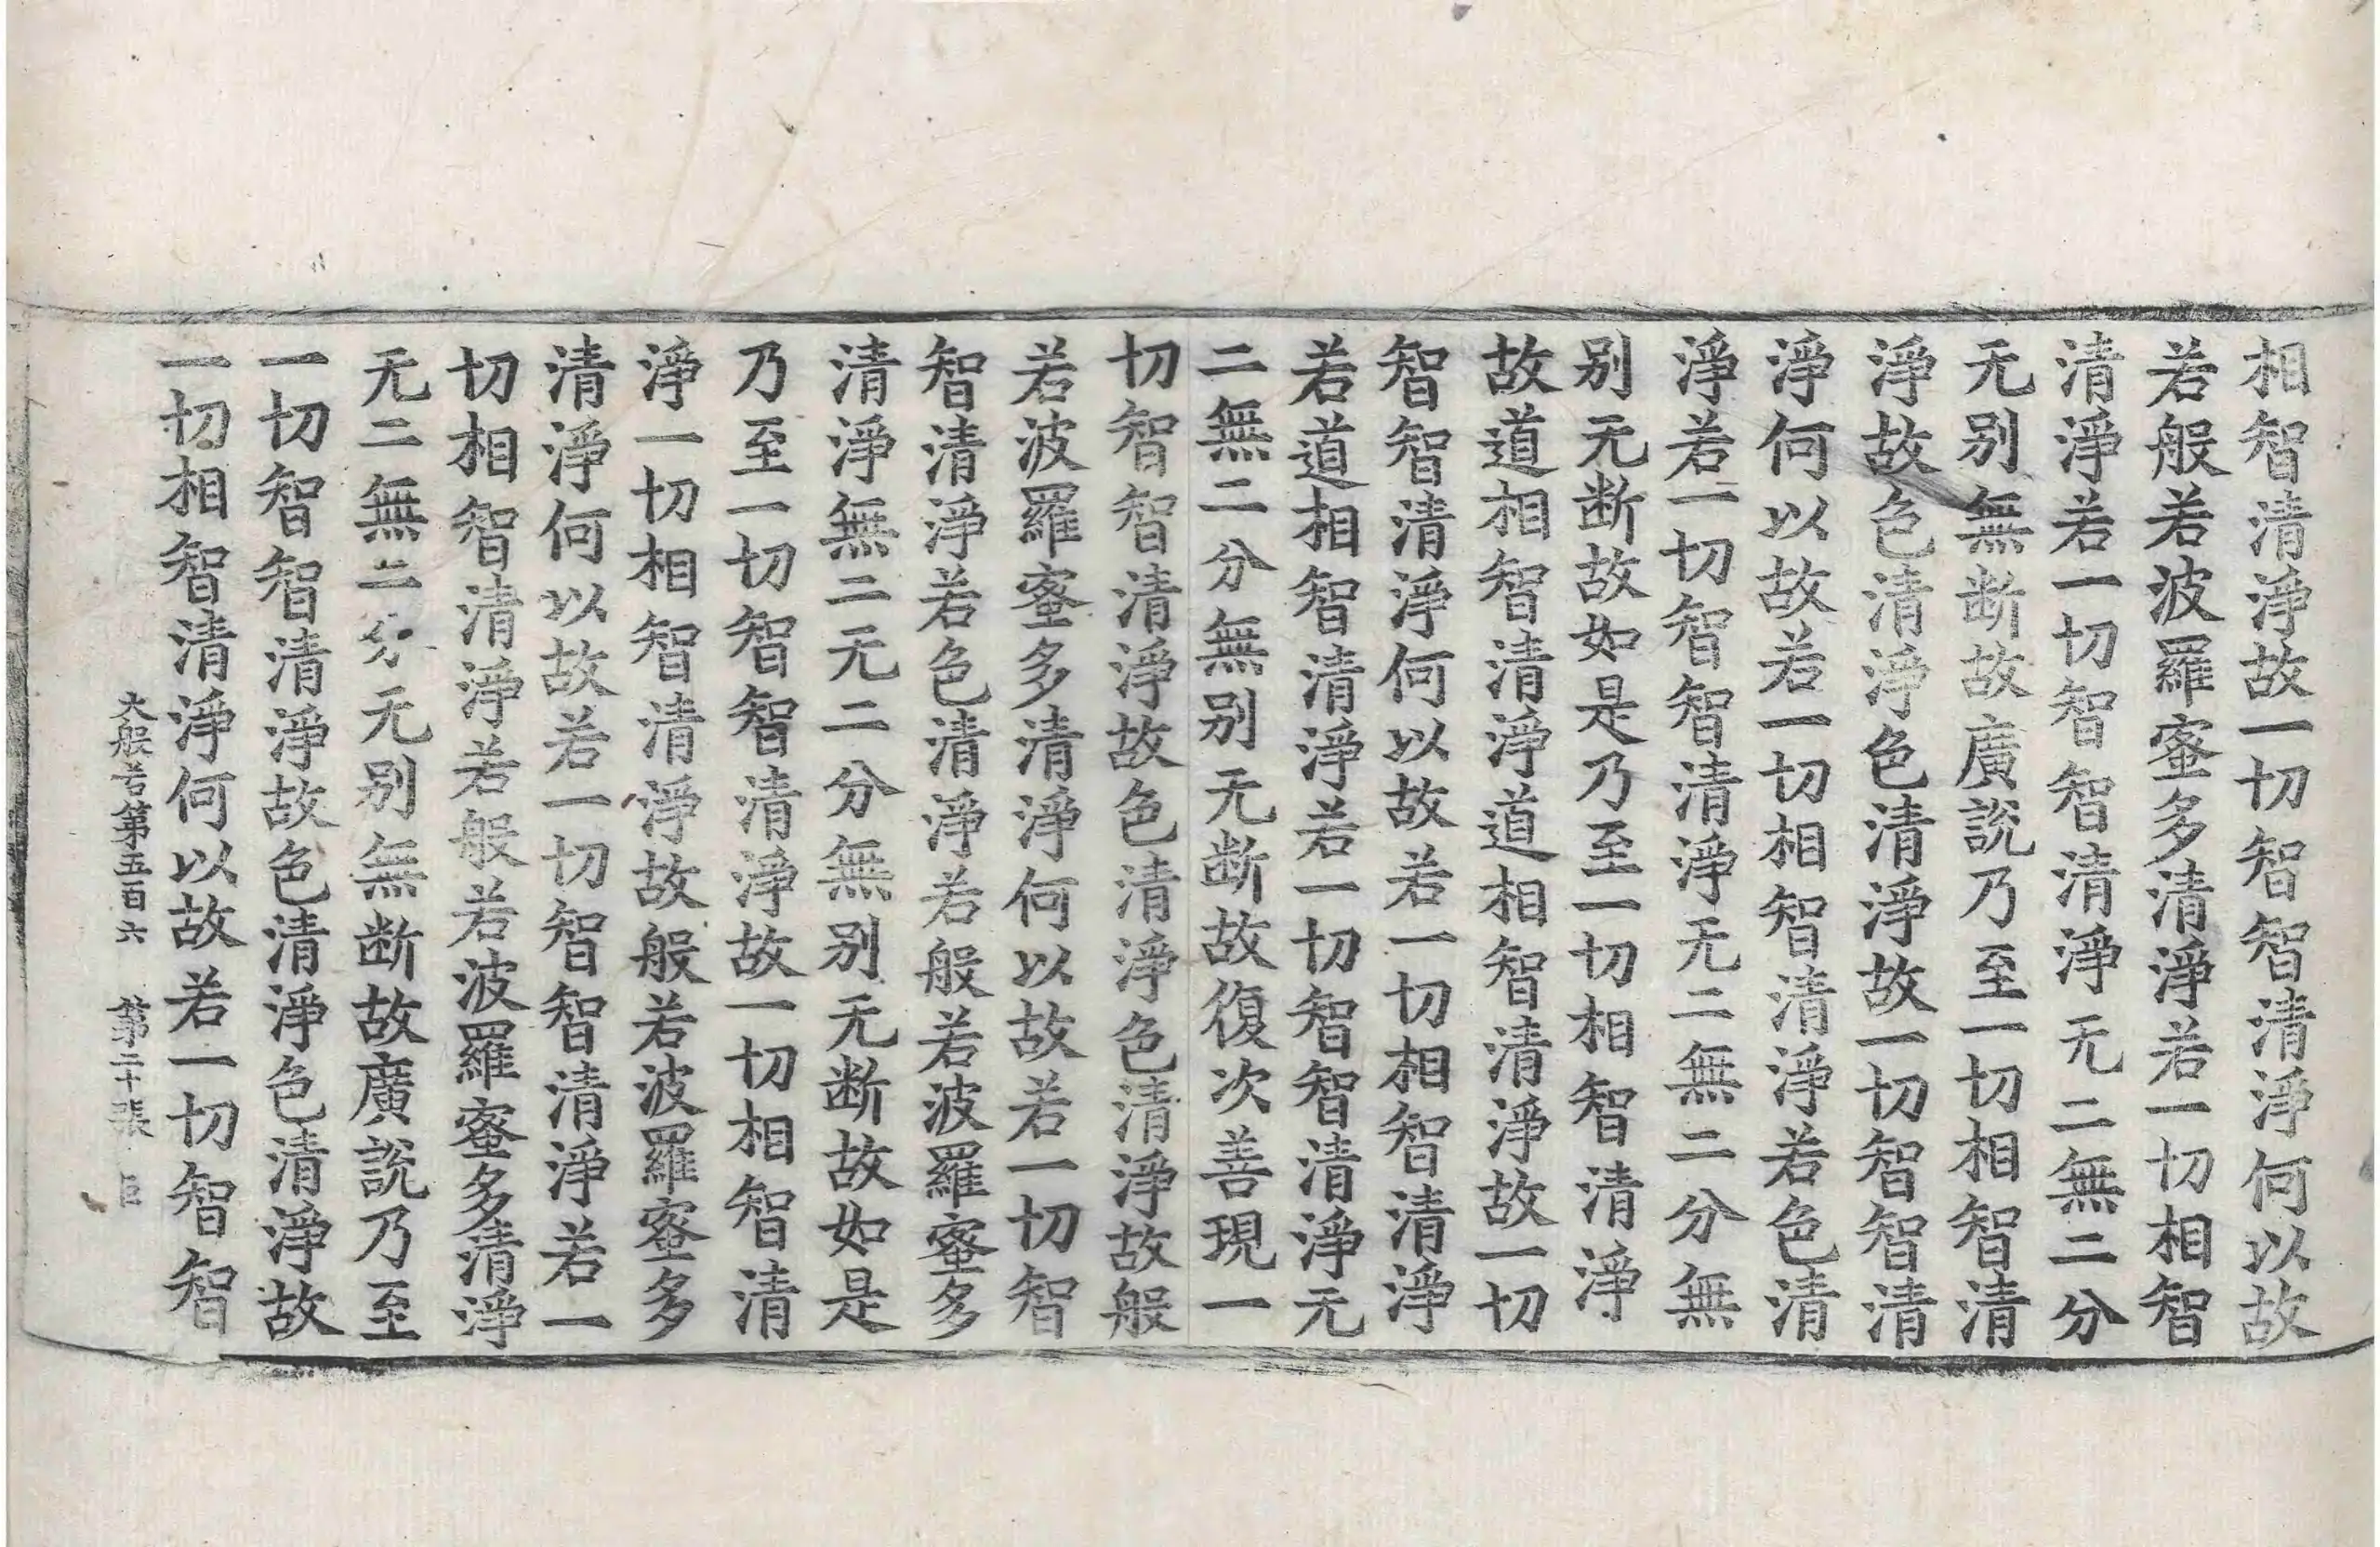 相智清淨故一切智智清淨何以故
若般若波羅蜜多清淨若一切相智
清淨若一切智智清淨无二無二分
无別無断故廣說乃至一切相智清
淨故色清淨色清淨故一切智智清
淨何以故若一切相智清淨若色清
淨若一切智智清淨无二無二分無
別无断故如是乃至一切相智清淨
故道相智清淨道相智清淨故一切
智智清淨何以故若一切相智清淨
若道相智清淨若一切智智清淨无
二無二分無別无断故復次善現一
切智智清淨故色清淨色清淨故般
若波羅蜜多清淨何以故若一切智
智清淨若色清淨若般若波羅蜜多
清淨無二无二分無別无断故如是
乃至一切智智清淨故一切相智清
淨一切相智清淨故般若波羅蜜多
清淨何以故若一切智智清淨若一
切相智清淨若般若波羅蜜多清淨
无二無二分无別無断故廣說乃至
一切智智清淨故色清淨色清淨故
一切相智清淨何以故若一切智智
大般若第五百六 第二十張 臣